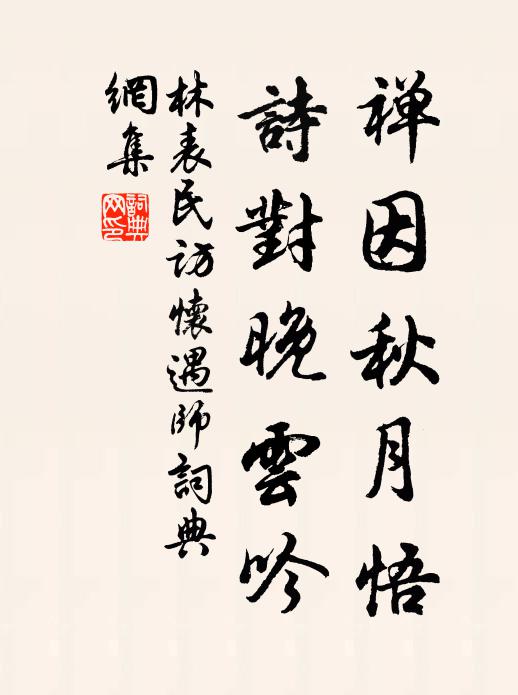 禅因秋月悟
詩對晚雲吟
林表民訪懷遇師詞典
網集
詞典
网印